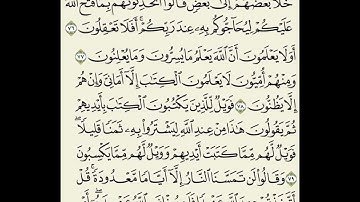 خَلَا بَعْضُهُمْ إِلَىٰ بَعْضٍ قَالُوٓا۟ أَتُحَدِّثُونَهُم بِمَا فَتَحَ ٱللَّهُ
عَلَيْكُمْ لِيُحَآجُّوكُم بِهِۦ عِندَ رَبِّكُمْ أَفَلَا تَعْقِلُونَ ٧٦
أَوَلَا يَعْلَمُونَ أَنَّ ٱللَّهَ يَعْلَمُ مَا يُسِرُّونَ وَمَا يُعْلِنُونَ ٧٧
وَمِنْهُمْ أُمِّيُّونَ لَا يَعْلَمُونَ ٱلْكِتَٰبَ إِلَّآ أَمَانِىَّ وَإِنْ هُمْ
إِلَّا يَظُنُّونَ ٧٨ فَوَيْلٌ لِّلَّذِينَ يَكْتُبُونَ ٱلْكِتَٰبَ بِأَيْدِيهِمْ
ثُمَّ يَقُولُونَ هَٰذَا مِنْ عِندِ ٱللَّهِ لِيَشْتَرُوا۟ بِهِۦ ثَمَنًا قَلِيلًا ۖ
فَوَيْلٌ لَّهُم مِّمَّا كَتَبَتْ أَيْدِيهِمْ وَوَيْلٌ لَّهُم مِّمَّا يَكْسِبُونَ
٧٩ وَقَالُوا۟ لَن تَمَسَّنَا ٱلنَّارُ إِلَّآ أَيَّامًا مَّعْدُودَةً ۚ قُلْ